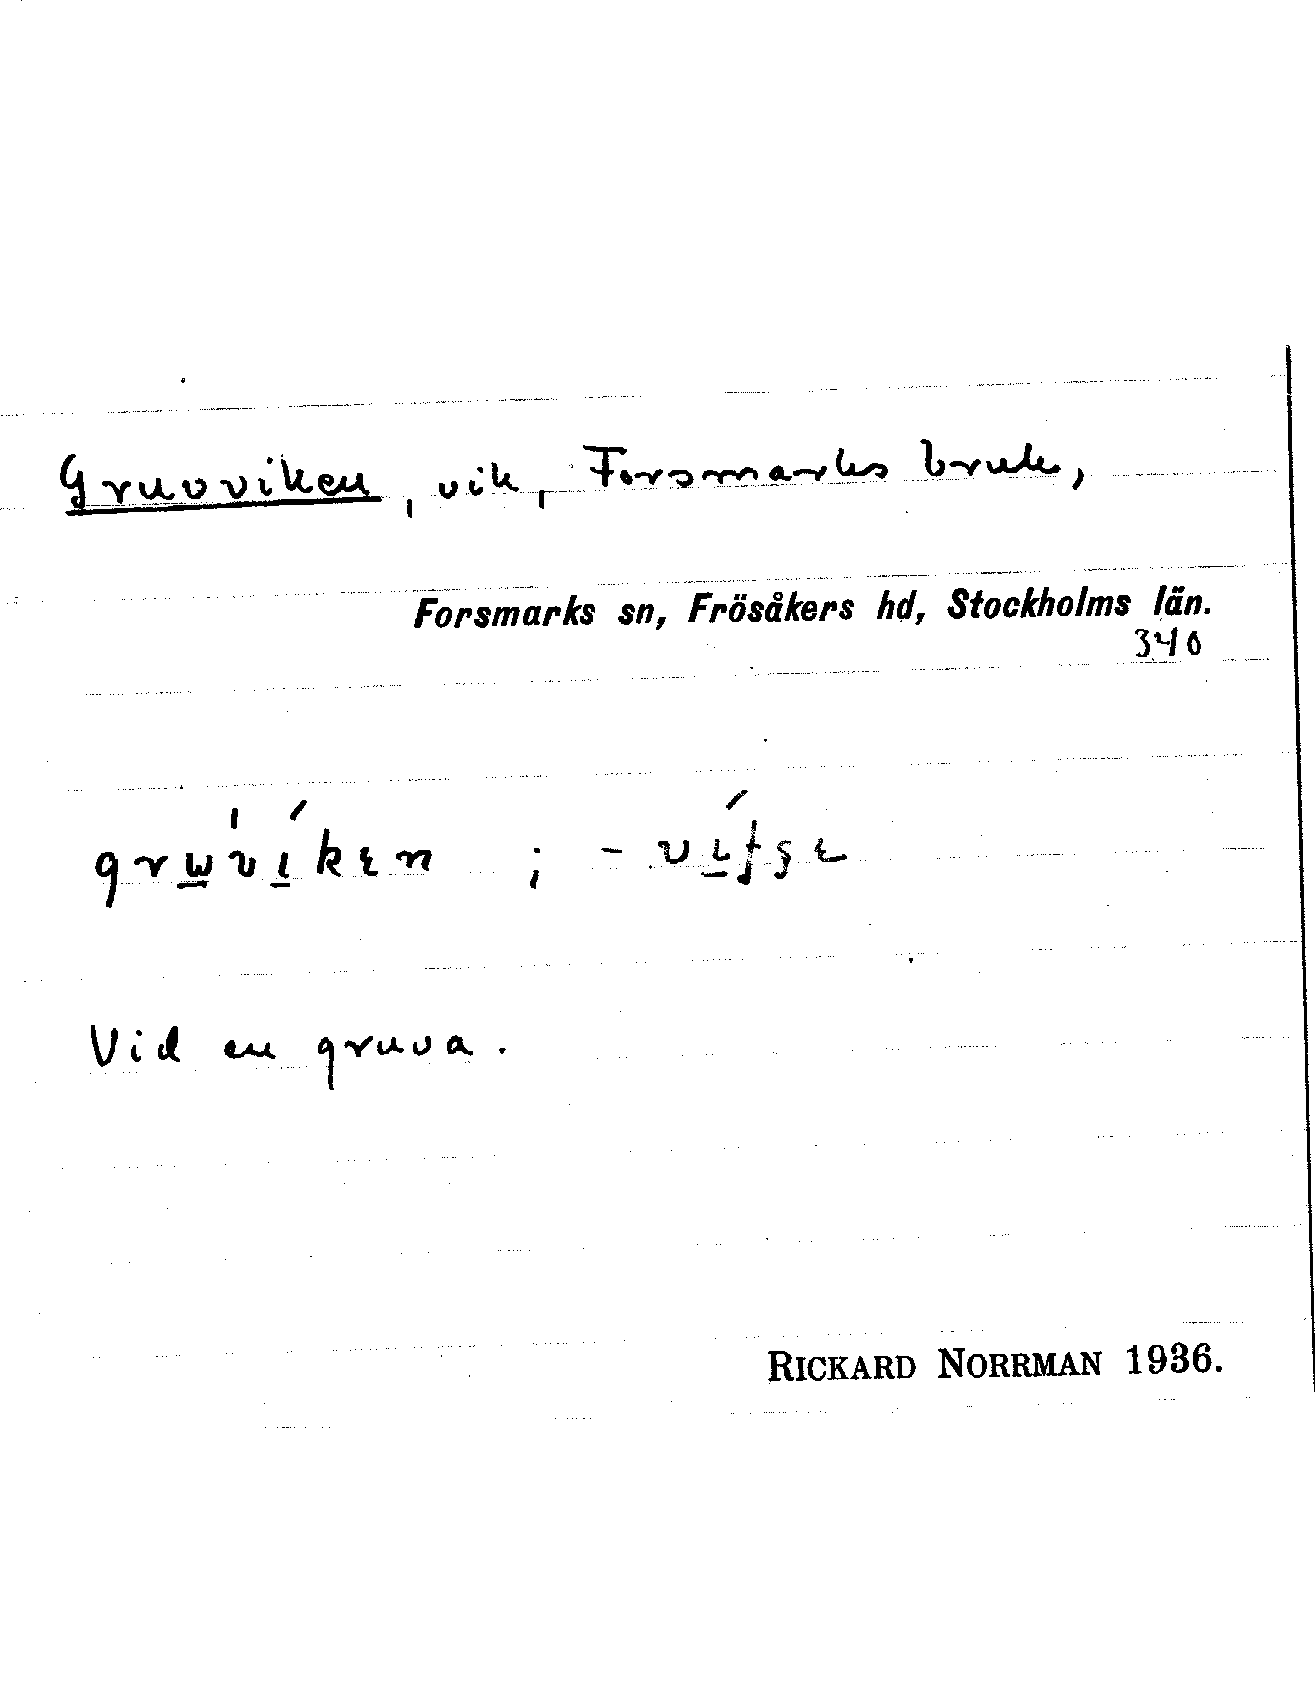 Gruvviken, vik, Forsmarks bruk,
Forsmarks sn, Frösåkers hd, Stockholms län.
340
Vid en gruva.
RICKARD NORRMAN 1936.